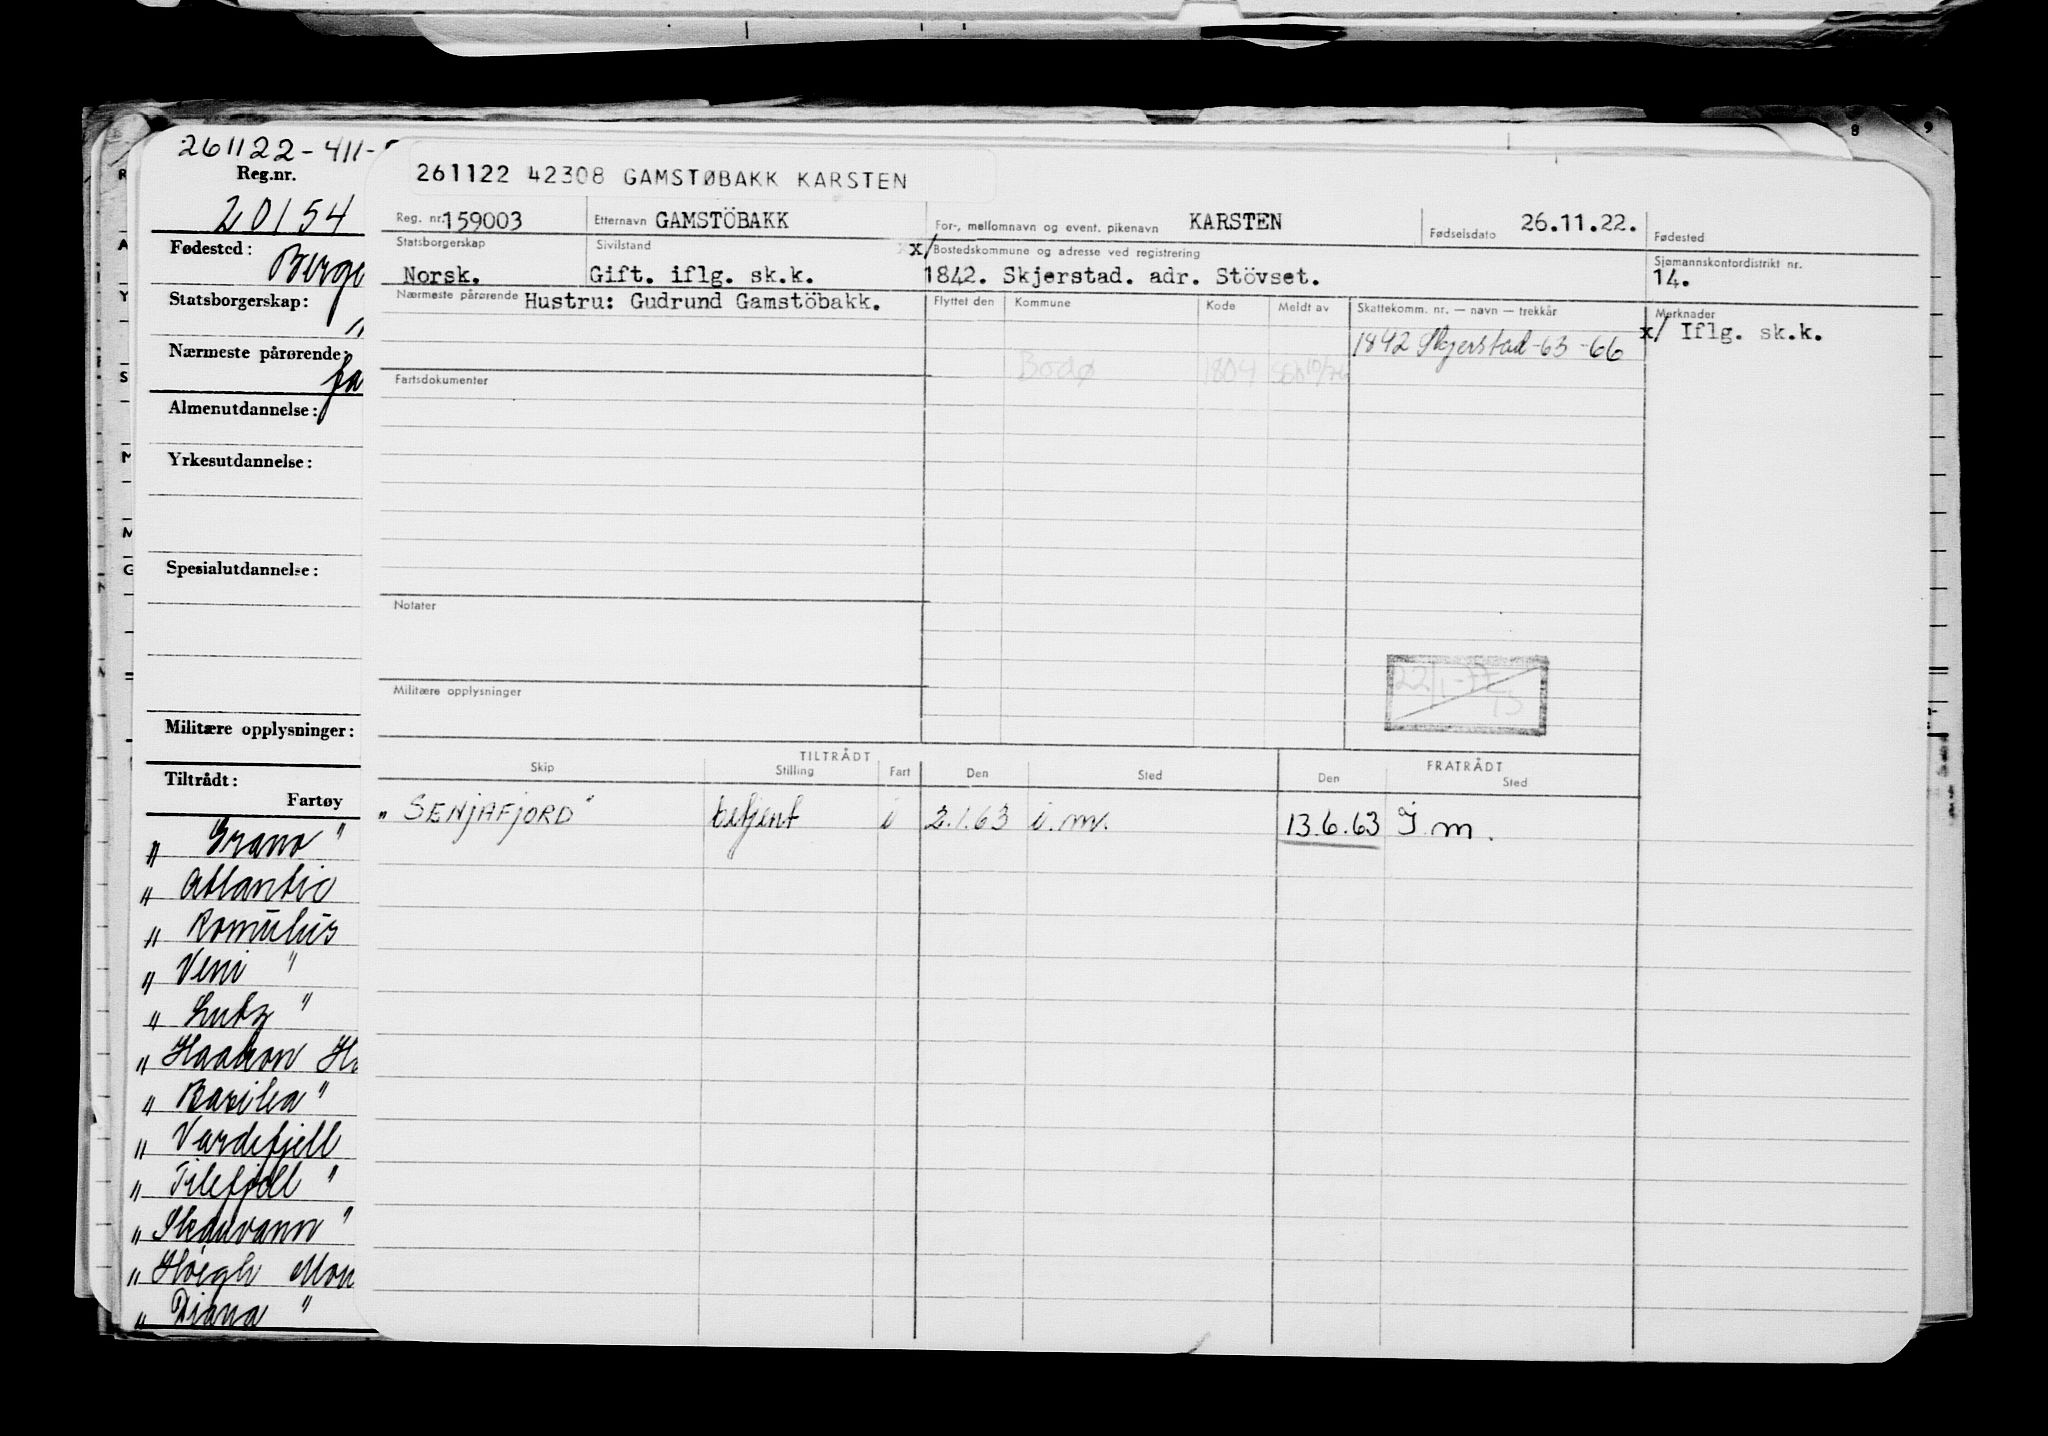 261122-411-
Reg.nr.
20154
Fødested:
Berge
Statsborgerskap:
"
Nærmeste pårørende:
fa
Almenutdannelse:
Yrkesutdannelse:
Spesialutdannelse:
Militære opplysninger:
Tiltrådt:
Fartøy
" Grano "
" Atlantic
" Romulus
" Veni "
" Lutz "
" Haakon Ha
" Basilea "
" Vardefjell
" Tilefjell "
" Skauvann "
" Höegh Mon
" Diana "
261122 42308 GAMSTØBAKK KARSTEN
Reg. nr. 159003 Etternavn GAMSTÖBAKK For-, mellomnavn og event. pikenavn KARSTEN Fødselsdato 26.11.22. Fødested
Statsborgerskap Sivilstand x/ Bostedskommune og adresse ved registrering Sjømannskontordistrikt nr.
Norsk. Gift. iflg. sk.k. 1842. Skjerstad. adr. Stövset. 14.
Nærmeste pårørende Hustru: Gudrund Gamstöbakk. Flyttet den Kommune Kode Meldt av Skattekomm. nr. — navn — trekkår Merknader
1842 Skjerstad -63 -66 x/ Iflg. sk.k.
Bodø 1804
Fartsdokumenter
Notater
Militære opplysninger
TILTRÅDT FRATRÅDT
Skip Stilling Fart Den Sted Den Sted
"SENJAFJORD" betjent i 2.1.63 i.m. 13.6.63 I.m.